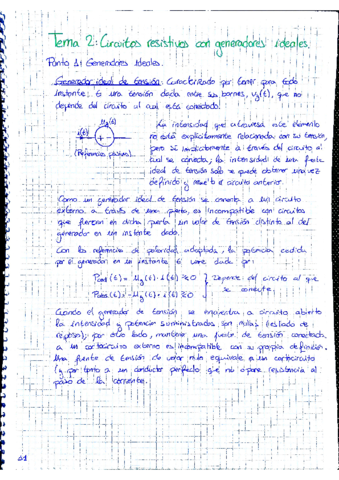 Tema 2: Circuitos resistivos con generadores ideales.
Punto 1: Generadores ideales.
Generador ideal de tensión: Caracterizado por tener para todo
instante, t, una tensión dada entre sus bornes, Ug(t), que no
depende del circuito al cual está conectado.
Ug(t)
i(t)
+
(Referencias positivas)
La intensidad que atraviesa este elemento
no está explícitamente relacionada con su tensión,
pero si implícitamente a través del circuito al
cual se conecta; la intensidad de una fuente
ideal de tensión solo se puede obtener una vez
definido y resuelto el circuito anterior.
Como un generador ideal de tensión se conecta a un circuito
externo a través de una puerta, es incompatible con circuitos
que fuercen en dicha puerta un valor de tensión distinto al del
generador en un instante dado.
Con las referencias de polaridad adoptada, la potencia cedida
por el generador en un instante t viene dada por:
Pced (t) = Ug(t) · i(t) ≷ 0
Pabs (t) = -Ug(t) · i(t) ≷ 0
Depende del circuito al que
se conecte.
Cuando el generador de tensión se encuentra a circuito abierto
la intensidad y potencia suministradas son nulas (estado de
reposo); por otro lado, mantener una fuente de tensión conectada
a un cortocircuito externo es incompatible con su propia definición.
Una fuente de tensión de valor nulo equivale a un cortocircuito
(y por tanto a un conductor perfecto que no opone resistencia al
paso de la corriente.